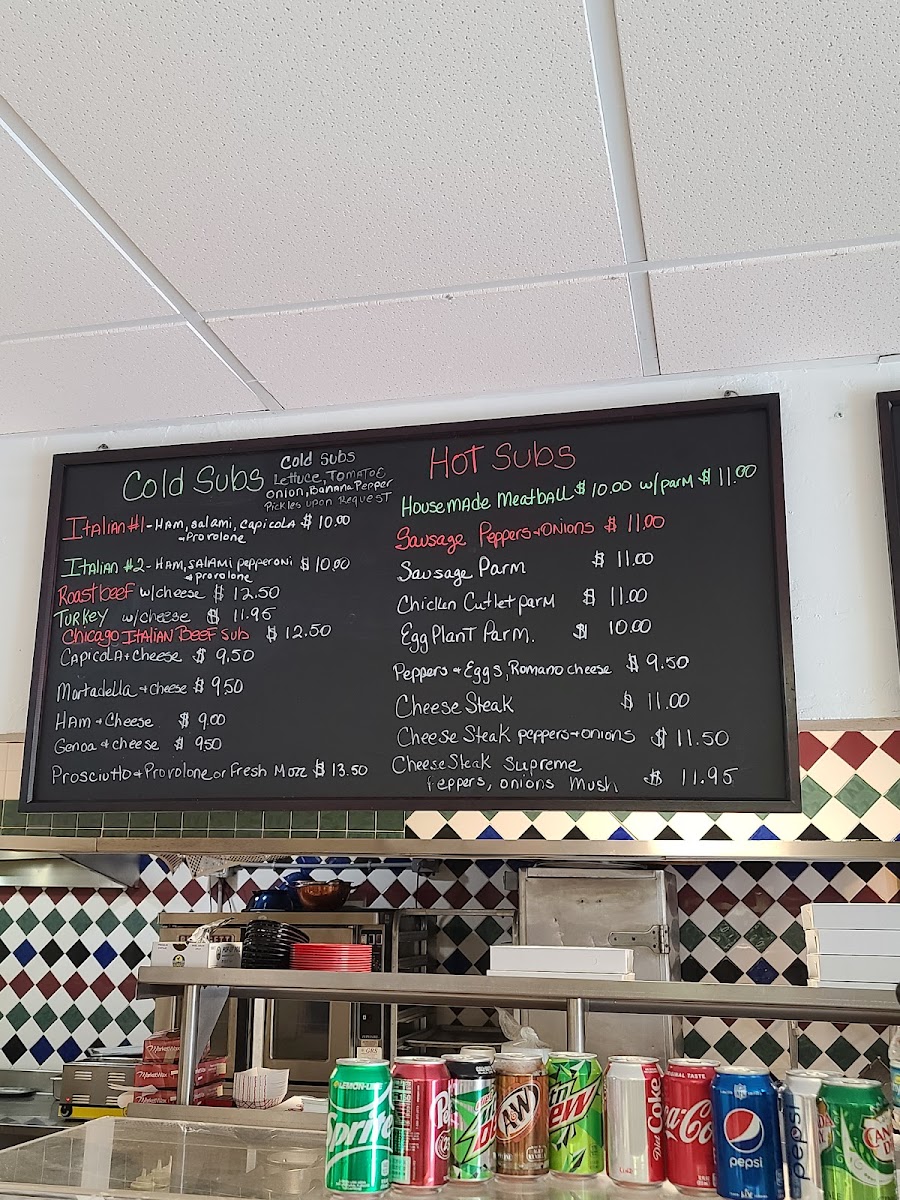 Cold Subs
Cold Subs
Lettuce, Tomatoe
onion, Banana Pepper
Pickles upon Request
Italian #1 - Ham, Salami, Capicola $ 10.00
+ Provolone
Italian #2 - Ham, Salami pepperoni $ 10.00
+ provolone
Roastbeef w/cheese $ 12.50
Turkey w/cheese $ 11.95
Chicago Italian Beef Sub $ 12.50
Capicola + Cheese $ 9.50
Mortadella + cheese $ 9.50
Ham + Cheese $ 9.00
Genoa + cheese $ 9.50
Prosciutto + Provolone or Fresh Mozz $ 13.50
Hot Subs
Housemade Meatball $ 10.00 w/parm $ 11.00
Sausage Peppers + Onions $ 11.00
Sausage Parm $ 11.00
Chicken Cutlet parm $ 11.00
EggPlant Parm. $ 10.00
Peppers + Eggs, Romano cheese $ 9.50
Cheese Steak $ 11.00
Cheese Steak peppers + onions $ 11.50
Cheese Steak Supreme
Peppers, onions Mush $ 11.95
MarketWax
LEMON-LIME
Sprite
A&W
Dew
Diet Coke
ORIGINAL TASTE
Coca-Co
NFL
pepsi
pepsi
CANA